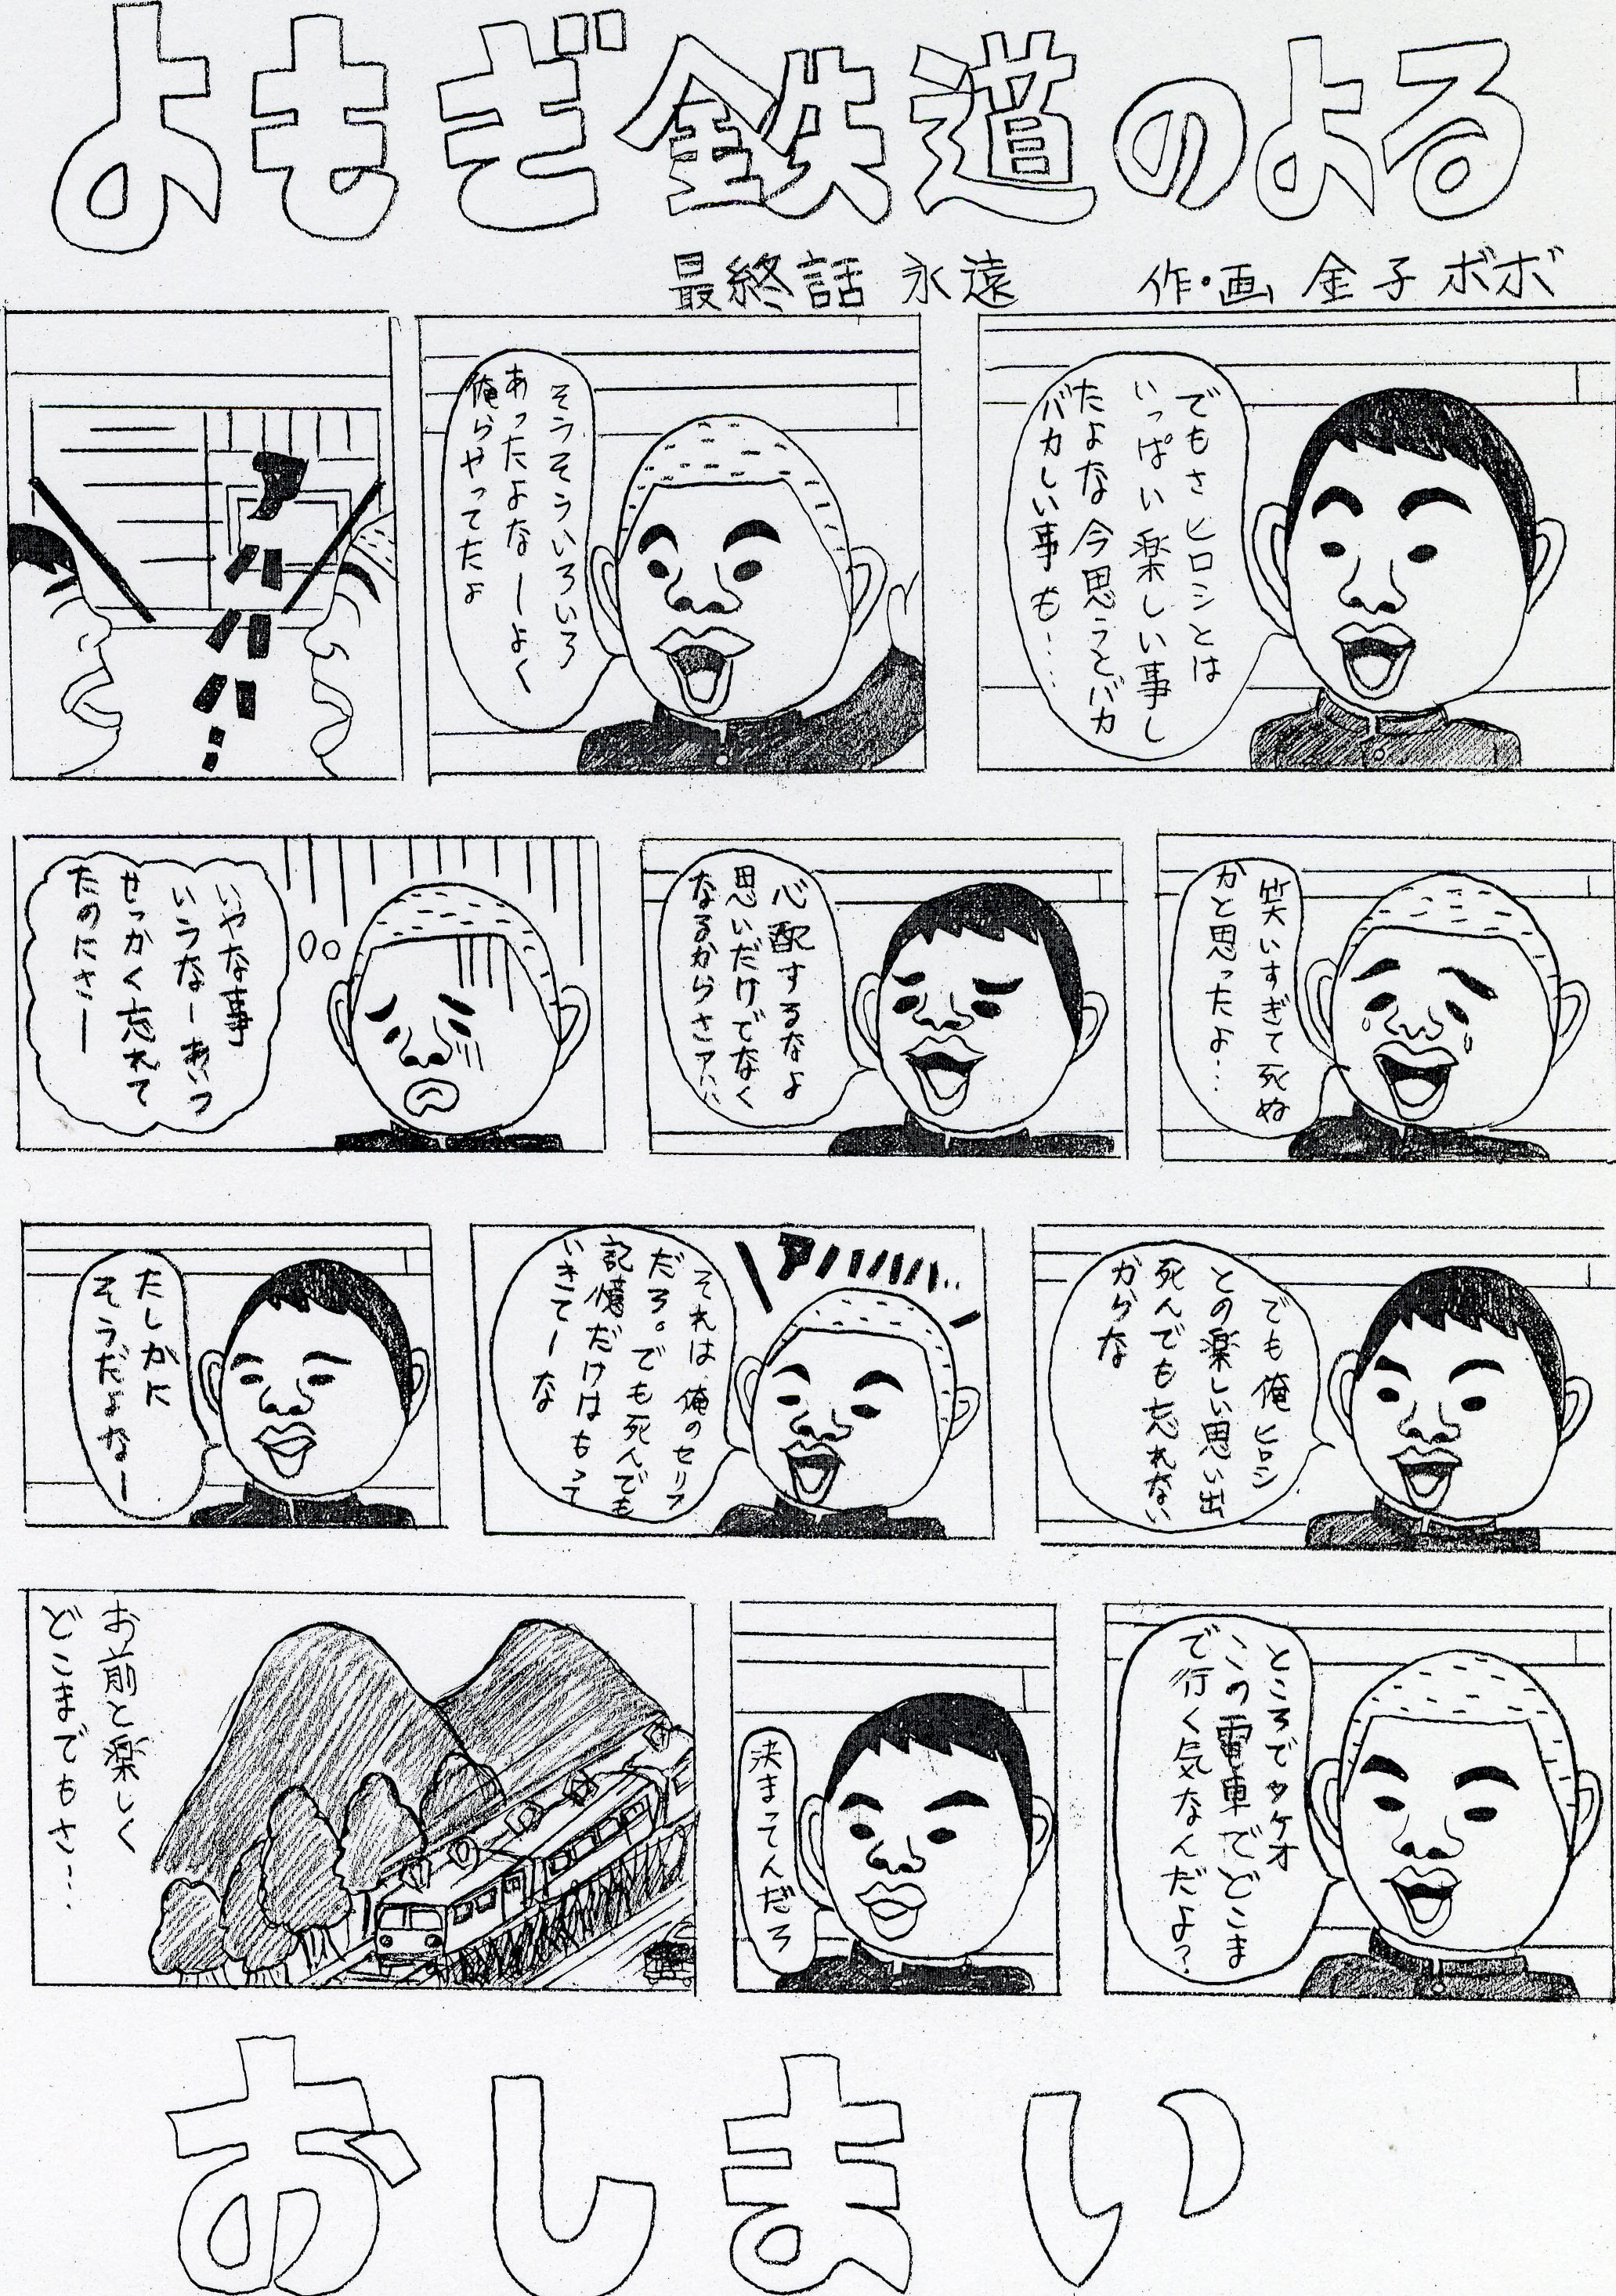 よもぎ鉄道のよる
最終話 永遠 作・画 金子ボボ
でもさヒロシとは
いっぱい楽しい事し
たよな今思うとバカ
バカしい事も……
そうそういろいろ
あったよなーよく
俺らやってたよ
アハハハ…
笑いすぎて死ぬ
かと思ったよ…
心配するなよ
思いだけでなく
なるからさアハハ
いやな事
いうなーあいつ
せっかく忘れて
たのにさー
でも俺ヒロシ
との楽しい思い出
死んでも忘れない
からな
アハハハハ…
それは俺のセリフ
だろ。でも死んでも
記憶だけはもって
いきてーな
たしかに
そうだよなー
ところでタケオ
この電車でどこま
で行く気なんだよ?
決まてんだろ
お前と楽しく
どこまでもさ…
おしまい